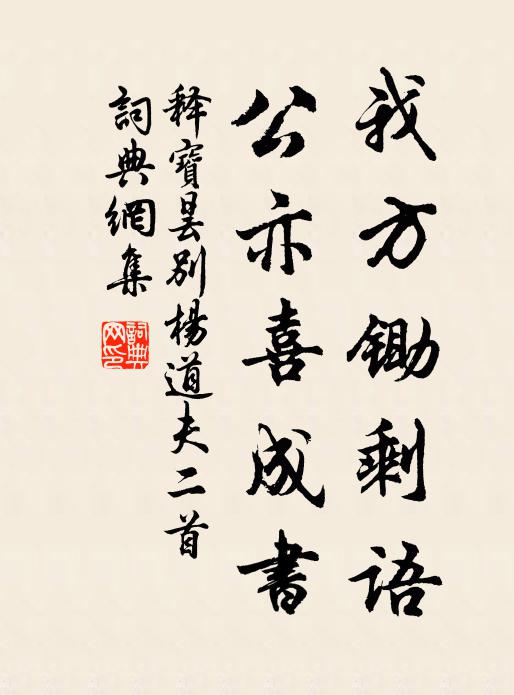 我方锄剩语
公亦喜成書
释寶昙别楊道夫二首
詞典網集
詞典网印